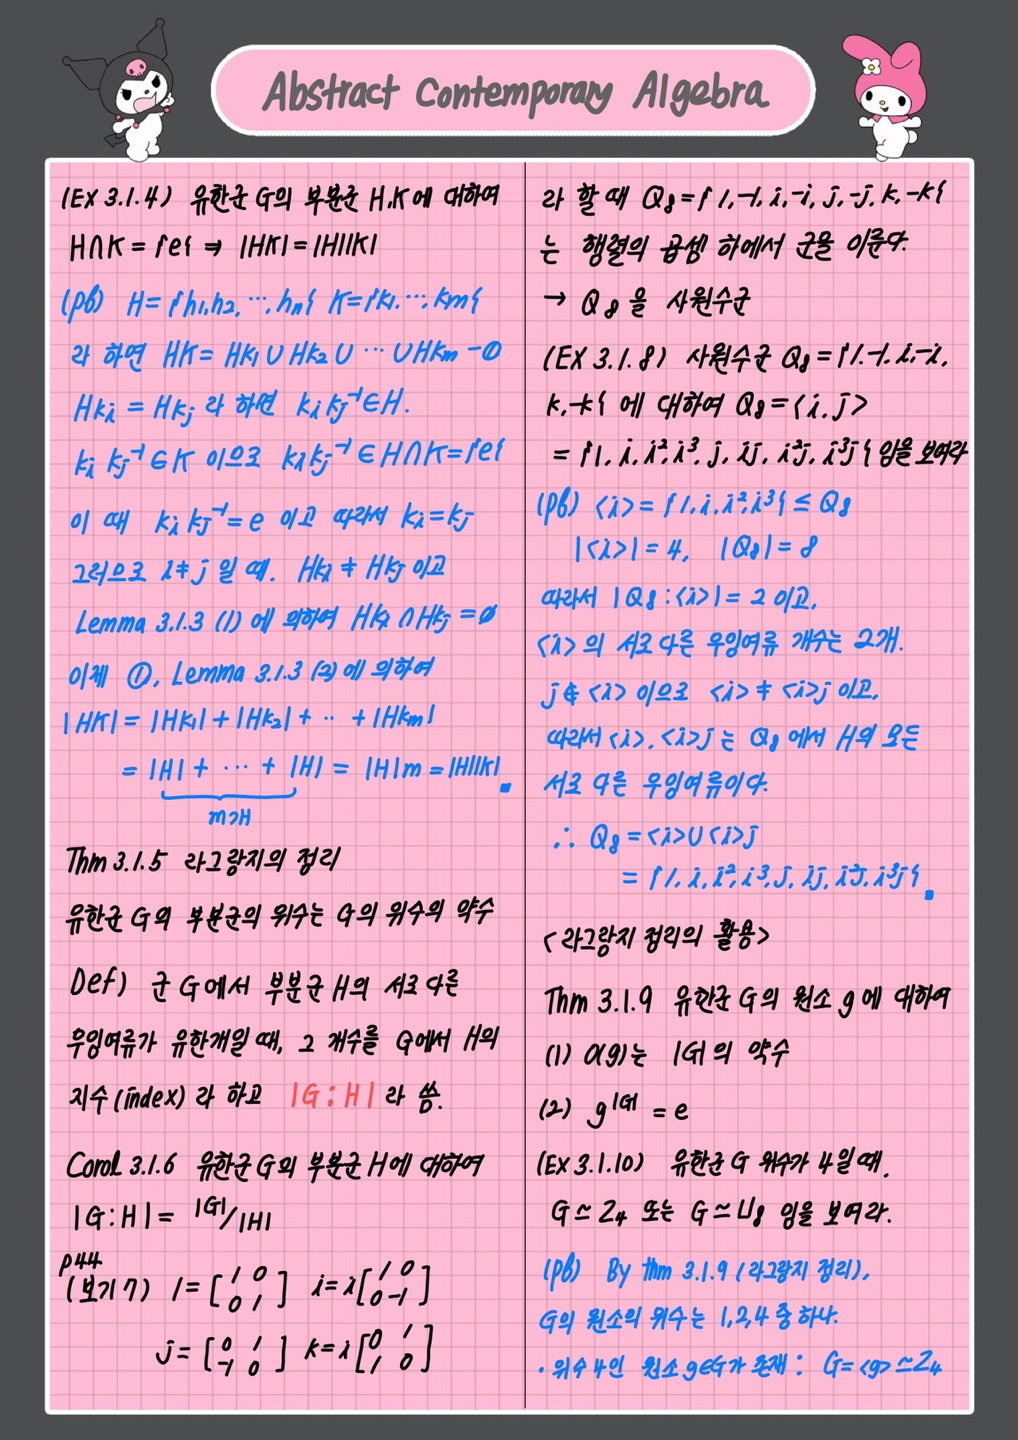 Abstract Contemporary Algebra
(Ex 3.1.4) 유한군 G의 부분군 H,K에 대하여
H∩K = {e} ⇒ |HK| = |H||K|
(pf) H = {h1, h2, ⋯, hn} K = {k1, ⋯, km}
라 하면 HK = Hk1 ∪ Hk2 ∪ ⋯ ∪ Hkm -①
Hki = Hkj 라 하면 ki kj⁻¹ ∈ H.
ki kj⁻¹ ∈ K 이으로 ki kj⁻¹ ∈ H∩K = {e}
이 때 ki kj⁻¹ = e 이고 따라서 ki = kj
그러으로 i ≠ j 일 때. Hki ≠ Hkj 이고
Lemma 3.1.3 (1) 에 의하여 Hki ∩ Hkj = ∅
이제 ①, Lemma 3.1.3 (2) 에 의하여
|HK| = |Hk1| + |Hk2| + ‥ + |Hkm|
= |H| + ⋯ + |H| = |H|m = |H||K|
m개
Thm 3.1.5 라그랑지의 정리
유한군 G의 부분군의 위수는 G의 위수의 약수
Def) 군 G에서 부분군 H의 서로 다른
우잉여류가 유한개일 때, 그 개수를 G에서 H의
지수 (index) 라 하고 |G:H| 라 씀.
Corol 3.1.6 유한군 G의 부분군 H에 대하여
|G:H| = |G|/|H|
p44
(보기 7) 1 = [1 0 0 1] i = i[1 0 0 -1]
j = [0 1 -1 0] k = i[0 1 1 0]
라 할 때 Q8 = {1, -1, i, -i, j, -j, k, -k}
는 행렬의 곱셈 하에서 군을 이룬다.
→ Q8 을 사원수군
(Ex 3.1.8) 사원수군 Q8 = {1, -1, i, -i,
k, -k} 에 대하여 Q8 = <i, j>
= {1, i, i², i³, j, ij, i²j, i³j} 임을 보여라
(pf) <i> = {1, i, i², i³} ≤ Q8
|<i>| = 4, |Q8| = 8
따라서 |Q8 : <i>| = 2 이고,
<i> 의 서로 다른 우잉여류 개수는 2개.
j ∉ <i> 이으로 <i> ≠ <i>j 이고,
따라서 <i>, <i>j 는 Q8 에서 H의 모든
서로 다른 우잉여류이다.
∴ Q8 = <i> ∪ <i>j
= {1, i, i², i³, j, ij, i²j, i³j}
<라그랑지 정리의 활용>
Thm 3.1.9 유한군 G의 원소 g에 대하여
(1) o(g)는 |G|의 약수
(2) g^|G| = e
(Ex 3.1.10) 유한군 G 위수가 4일 때,
G ≃ Z4 또는 G ≃ U8 임을 보여라.
(pf) By thm 3.1.9 (라그랑지 정리),
G의 원소의 위수는 1,2,4 중 하나.
· 위수 4인 원소 g∈G가 존재 : G = <g> ≃ Z4